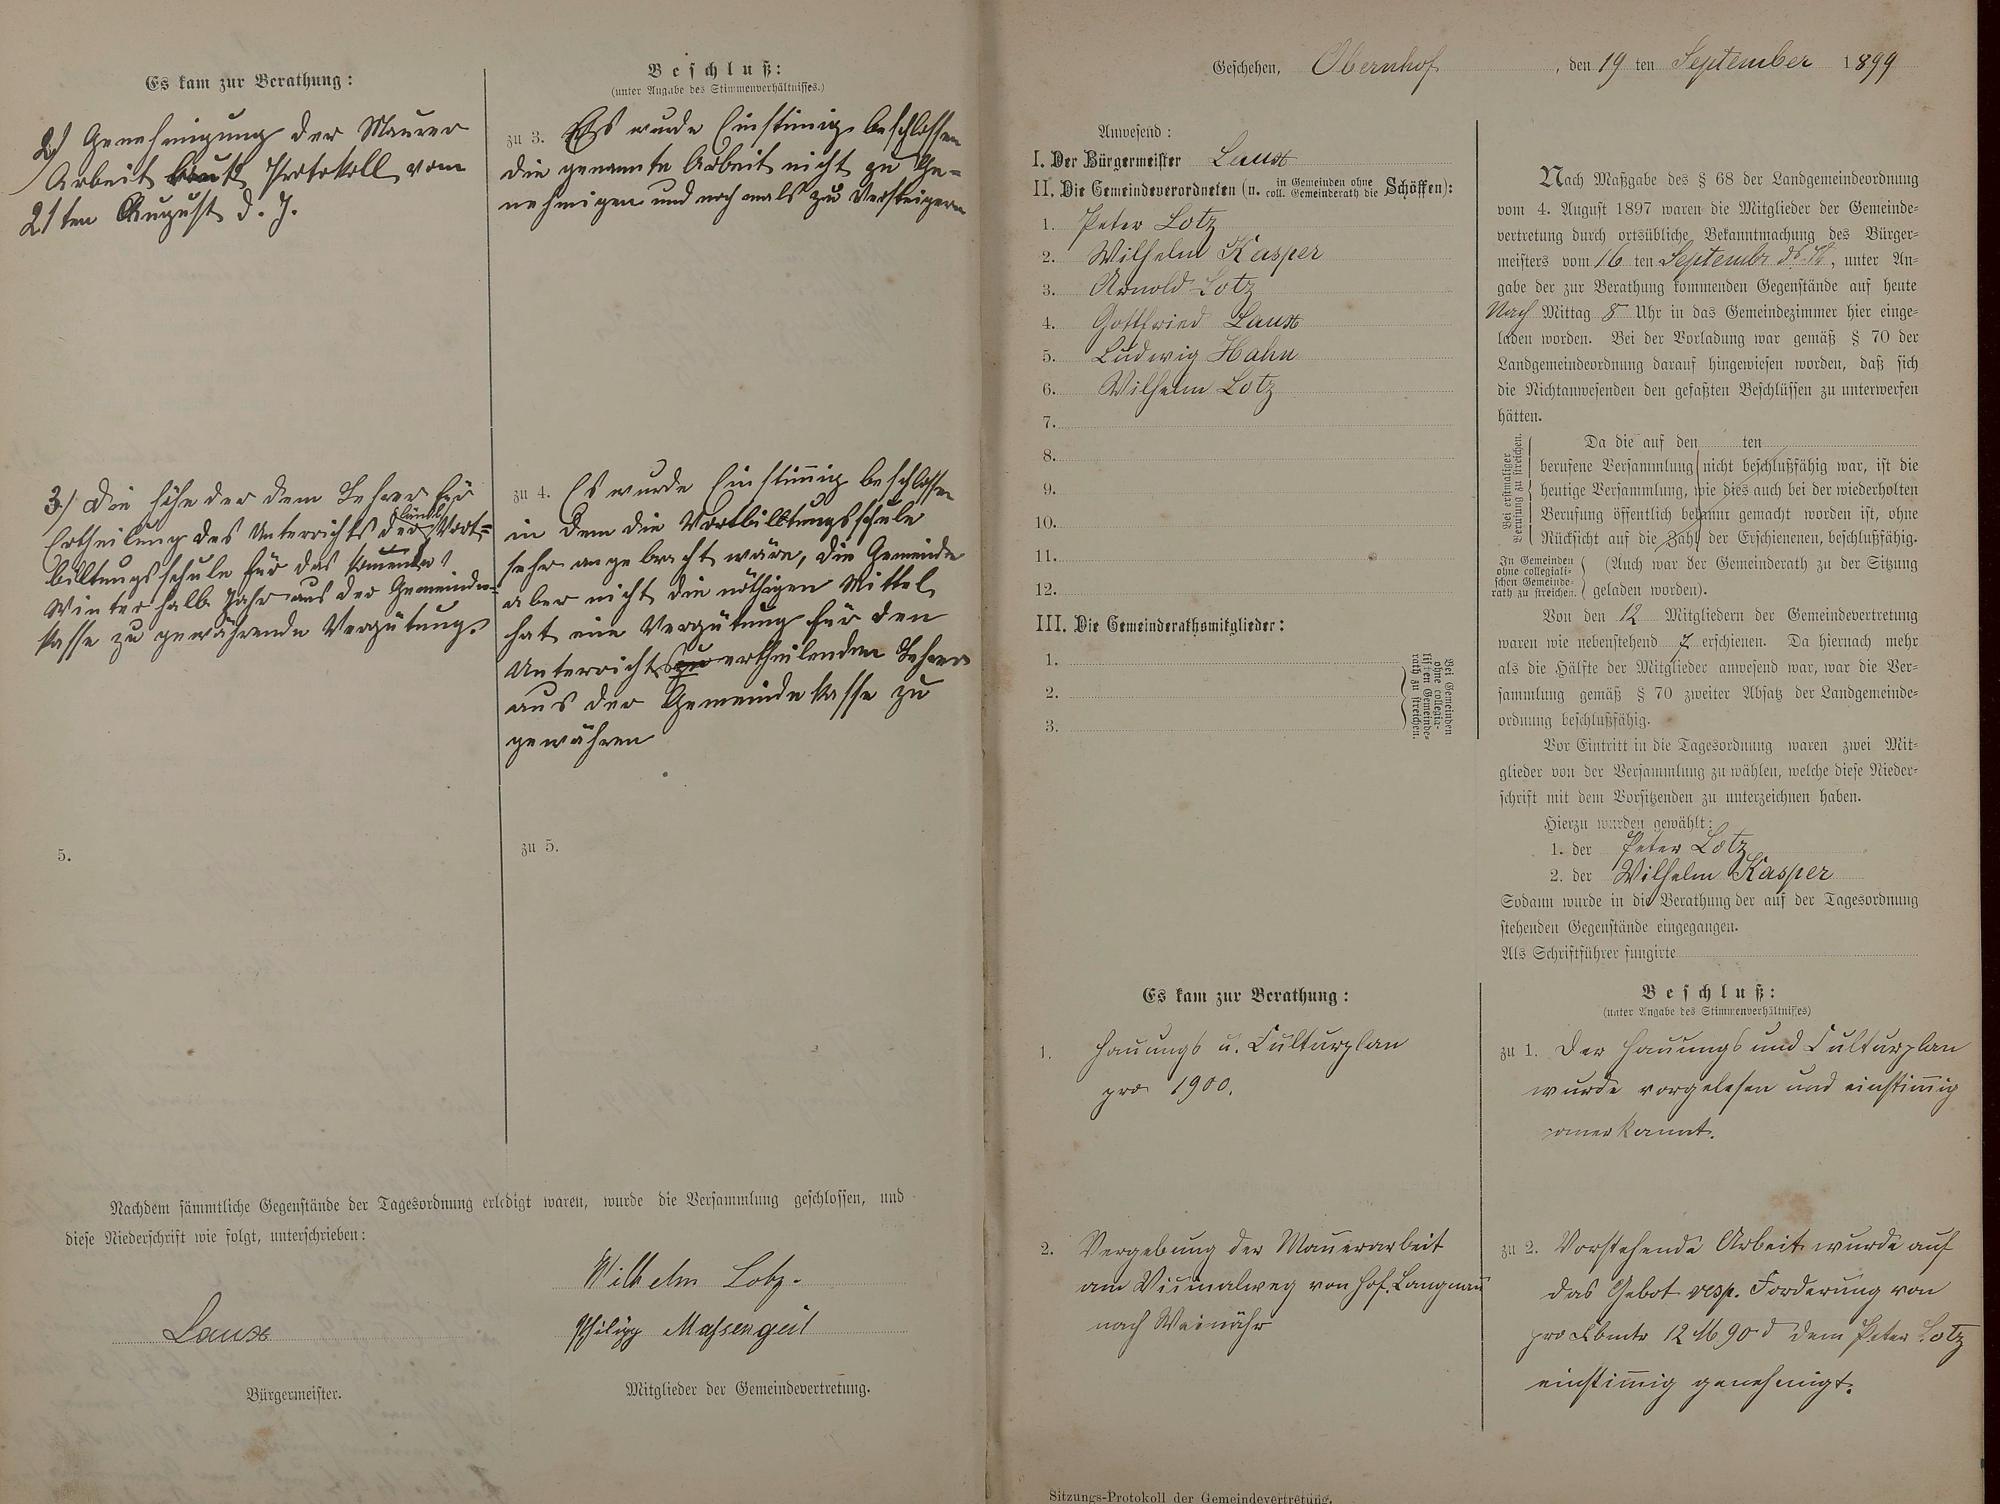 Es kam zur Berathung:
2) Genehmigung der Maurer
Arbeit laut Protokoll vom
21ten August d. J.
3) Die Höhe der dem Lehrer für
Ertheilung des Unterrichts der ländl. Vort=
biltungsschule für das kommende
Winterhalb Jahr aus der Gemeinde=
kasse zu gewährende Vergütung.
5.
Beschluß:
(unter Angabe des Stimmenverhältnisses.)
zu 3. Es wurde Einstimig beschlossen
die genannte Arbeit nicht zu Ge=
nehmigen und noch mals zu Versteigern
zu 4. Es wurde Einstimmig beschlossen
in dem die Vortbilltungsschule
sehr angebracht wäre, die Gemeinde
aber nicht die nöthigen Mittel
hat eine Vergütung für den
Unterricht zu ertheilenden Lehrer
aus der Gemeindekasse zu
gewähren
zu 5.
Nachdem sämmtliche Gegenstände der Tagesordnung erledigt waren, wurde die Versammlung geschlossen, und
diese Niederschrift wie folgt, unterschrieben:
Wilhelm Lotz.
Laux
Philipp Massengeil
Bürgermeister.
Mitglieder der Gemeindevertretung.
Geschehen, Obernhof, den 19 ten September 1899
Anwesend:
I. Der Bürgermeister Laux
II. Die Gemeindeverordneten (u. in Gemeinden ohne coll. Gemeinderath die Schöffen):
1. Peter Lotz
2. Wilhelm Kasper
3. Arnold Lotz
4. Gottfried Laux
5. Ludwig Hahn
6. Wilhelm Lotz
7.
8.
9.
10.
11.
12.
III. Die Gemeinderathsmitglieder:
1.
2.
3.
Bei Gemeinden
ohne collegia-
lischen Gemeinde-
rath zu streichen.
Nach Maßgabe des § 68 der Landgemeindeordnung
vom 4. August 1897 waren die Mitglieder der Gemeinde-
vertretung durch ortsübliche Bekanntmachung des Bürger-
meisters vom 16 ten September ds. Js., unter An-
gabe der zur Berathung kommenden Gegenstände auf heute
Nach Mittag 8 Uhr in das Gemeindezimmer hier einge-
laden worden. Bei der Vorladung war gemäß § 70 der
Landgemeindeordnung darauf hingewiesen worden, daß sich
die Nichtanwesenden den gefaßten Beschlüssen zu unterwerfen
hätten.
Bei erstmaliger
Berufung zu streichen.
Da die auf den ten
berufene Versammlung nicht beschlußfähig war, ist die
heutige Versammlung, wie dies auch bei der wiederholten
Berufung öffentlich bekannt gemacht worden ist, ohne
Rücksicht auf die Zahl der Erschienenen, beschlußfähig.
In Gemeinden
ohne collegiali-
schen Gemeinde-
rath zu streichen.
(Auch war der Gemeinderath zu der Sitzung
geladen worden).
Von den 12 Mitgliedern der Gemeindevertretung
waren wie nebenstehend 7 erschienen. Da hiernach mehr
als die Hälfte der Mitglieder anwesend war, war die Ver-
sammlung gemäß § 70 zweiter Absatz der Landgemeinde-
ordnung beschlußfähig.
Vor Eintritt in die Tagesordnung waren zwei Mit-
glieder von der Versammlung zu wählen, welche diese Nieder-
schrift mit dem Vorsitzenden zu unterzeichnen haben.
Hierzu wurden gewählt:
1. der Peter Lotz
2. der Wilhelm Kasper
Sodann wurde in die Berathung der auf der Tagesordnung
stehenden Gegenstände eingegangen.
Als Schriftführer fungirte
Es kam zur Berathung:
1. Hauungs u. Culturplan
pro 1900.
2. Vergebung der Mauerarbeit
am Vicinalweg von Hof. Langnau
nach Weinähr
Beschluß:
(unter Angabe des Stimmenverhältnisses)
zu 1. Der Hauungs und Culturplan
wurde vorgelesen und einstimig
anerkannt.
zu 2. Vorstehende Arbeit wurde auf
das Gebot resp. Forderung von
pro Cbmtr 12 M 90 d dem Peter Lotz
einstimmig genehmigt.
Sitzungs-Protokoll der Gemeindevertretung.